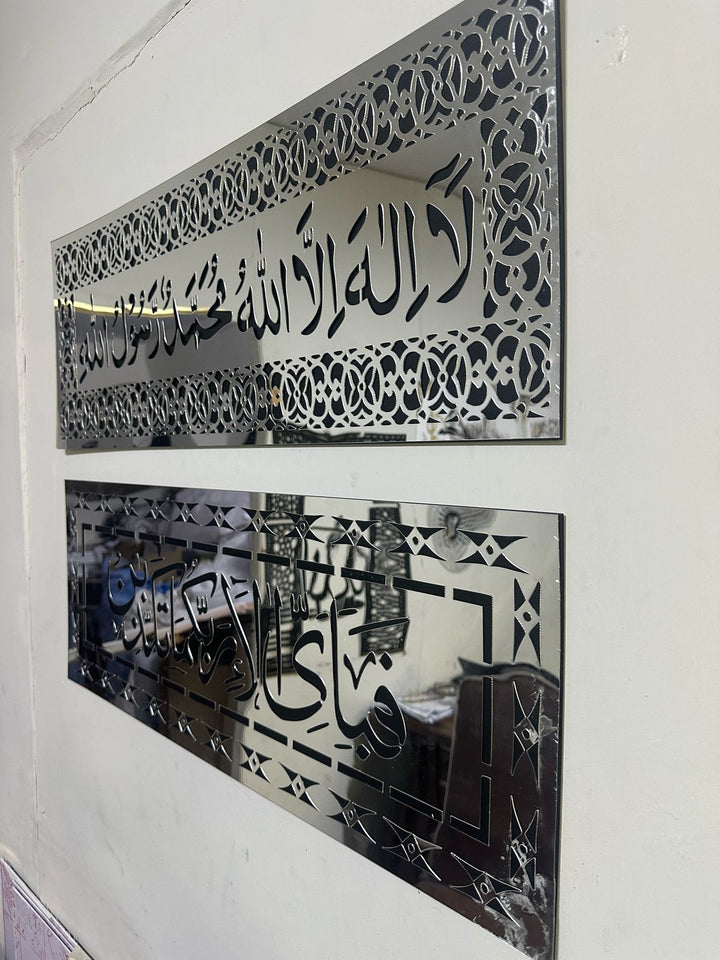 لَا اِلٰهَ اِلَّا اللّٰهُ مُحَمَّدٌ رَّسُوْلُ اللّٰهِ
فَبِاَيِّ اٰلَآءِ رَبِّكُمَا تُكَذِّبٰنِ